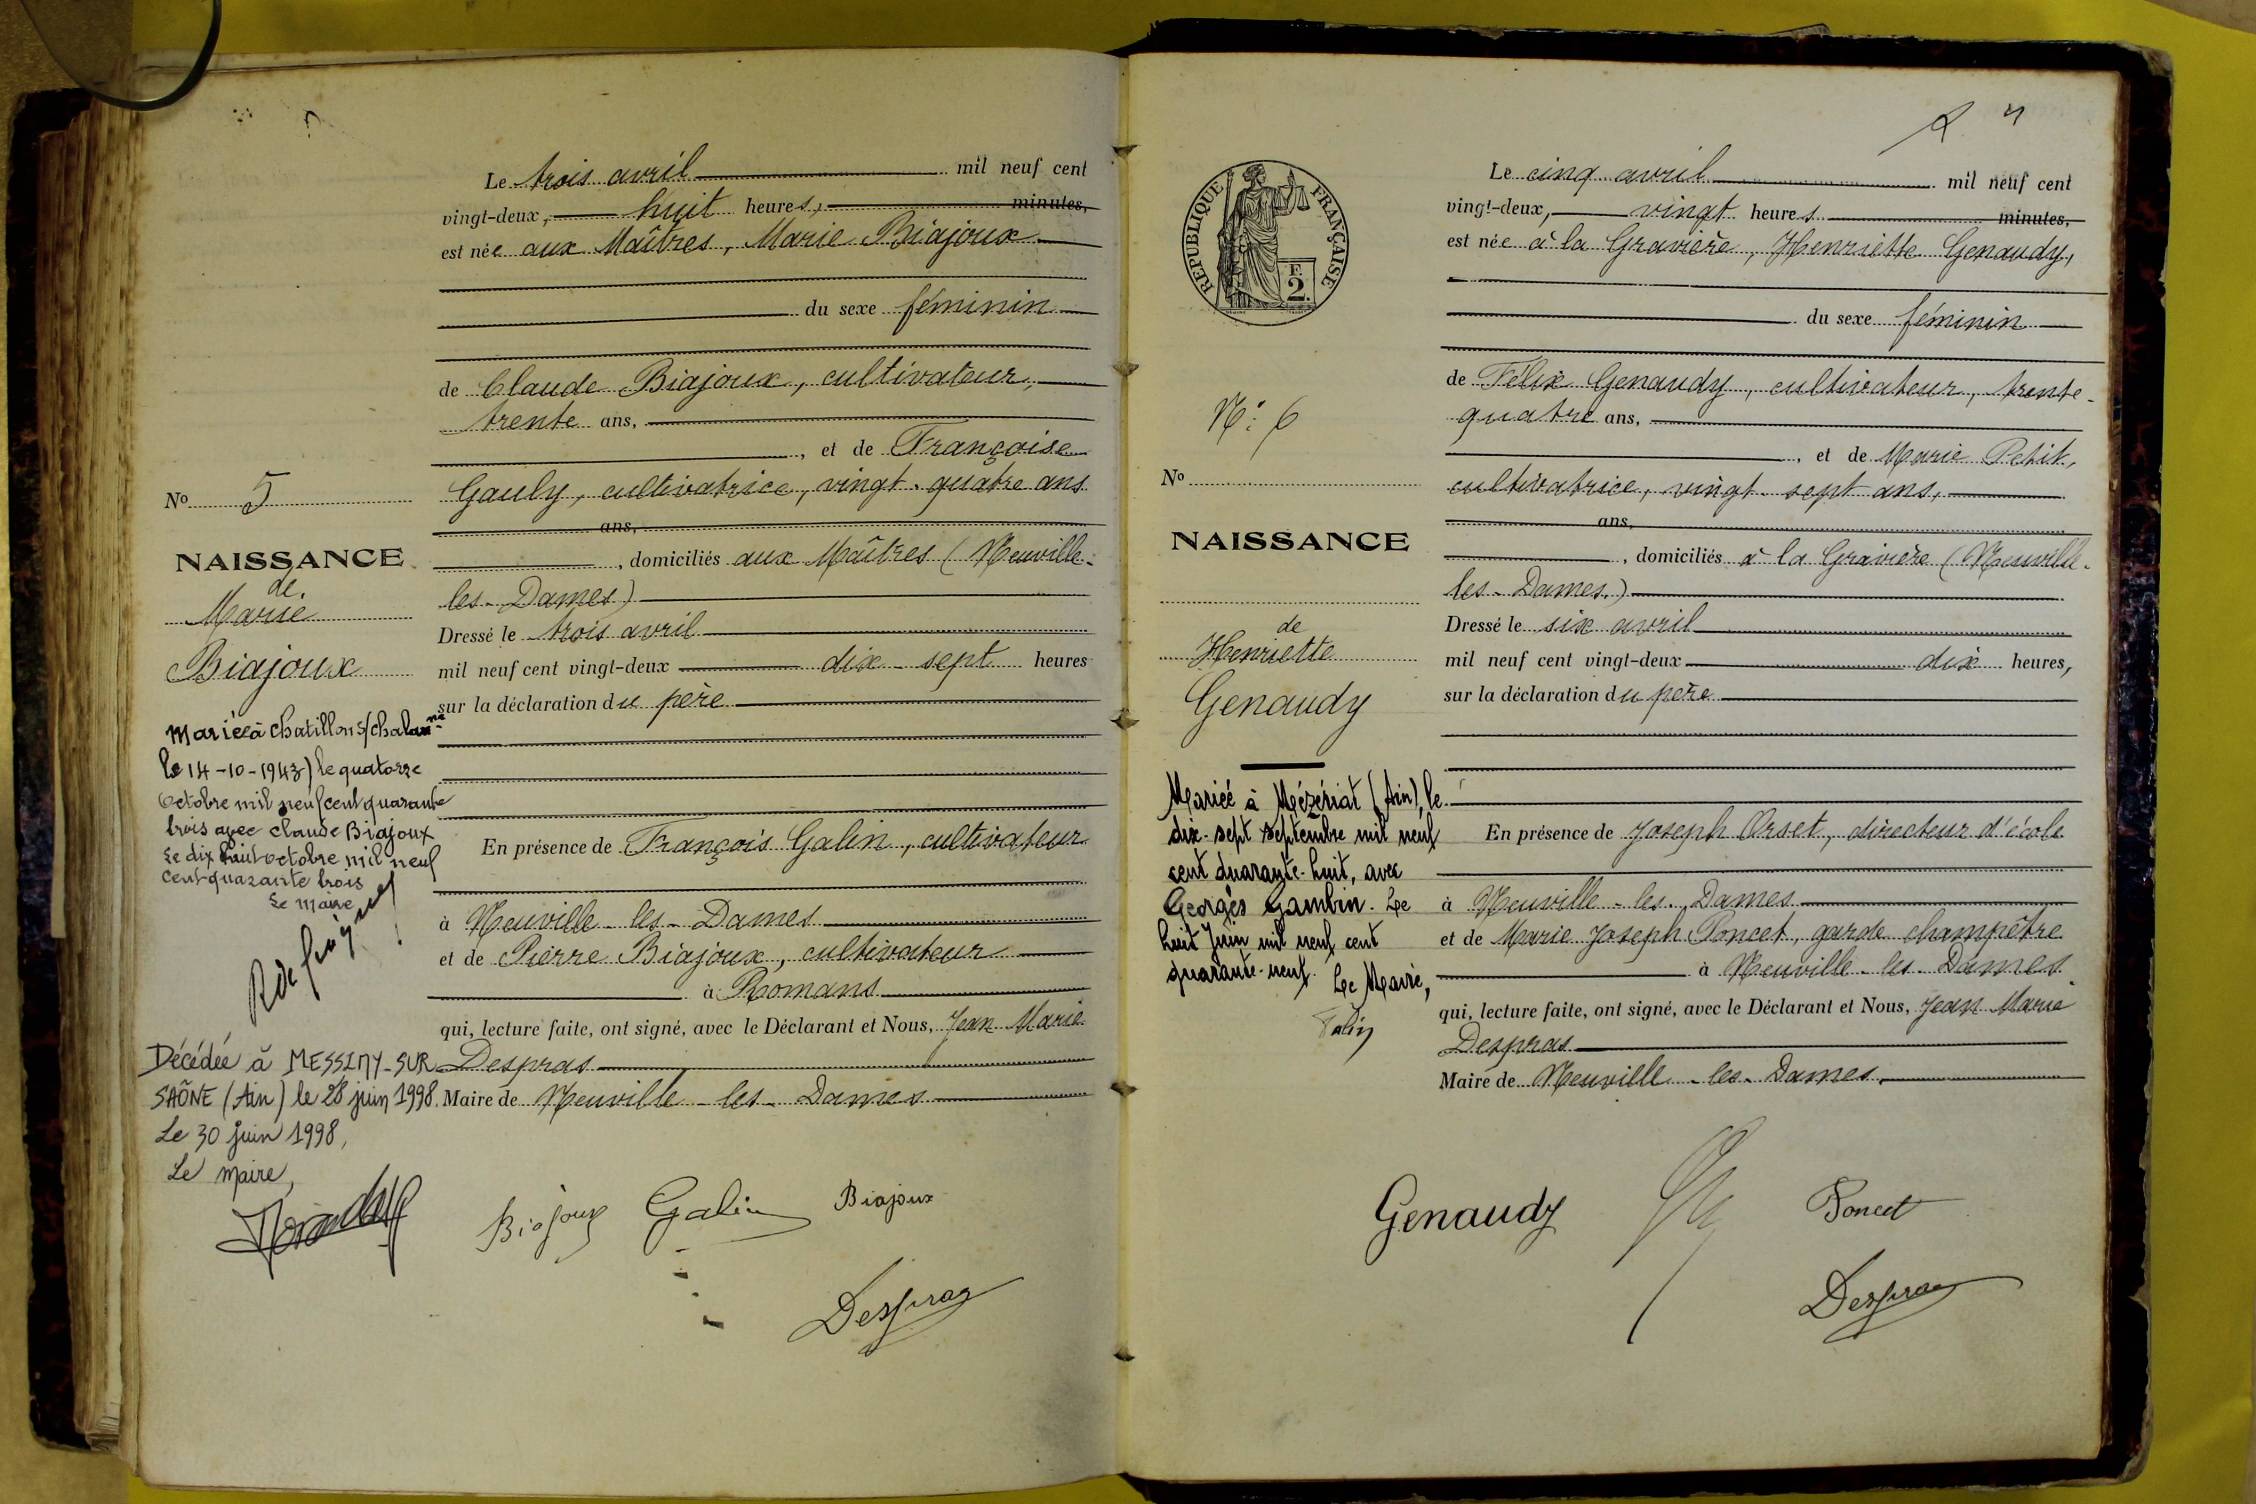 Le trois avril mil neuf cent
vingt-deux, huit heures, minutes,
est née aux Maîtres, Marie Biajoux
du sexe féminin
de Claude Biajoux, cultivateur,
trente ans,
, et de Françoise
Gauly, cultivatrice, vingt-quatre ans
ans,
, domiciliés aux Maîtres (Neuville-
les-Dames)
Dressé le trois avril
mil neuf cent vingt-deux dix-sept heures
sur la déclaration du père
En présence de François Galin, cultivateur
à Neuville-les-Dames
et de Pierre Biajoux, cultivateur
à Romans
qui, lecture faite, ont signé, avec le Déclarant et Nous, Jean Marie
Despras
Maire de Neuville-les-Dames
No 5
NAISSANCE
de
Marie
Biajoux
Mariée à Chatillon s/Chalarne
le 14-10-1943) le quatorze
Octobre mil neuf cent quarante
trois avec Claude Biajoux
Le dix huit octobre mil neuf
cent quarante trois
Le Maire
Décédée à MESSIMY-SUR-
SAÔNE (Ain) le 28 juin 1998.
Le 30 juin 1998,
Le Maire,
Biajoux Galin Biajoux
Despras
REPUBLIQUE FRANÇAISE
F.
2.
Le cinq avril mil neuf cent
vingt-deux, vingt heures minutes,
est née à la Gravière, Henriette Genaudy,
du sexe féminin
de Félix Genaudy, cultivateur, trente-
quatre ans,
, et de Marie Petit,
cultivatrice, vingt-sept ans,
ans,
, domiciliés à la Gravière (Neuville-
les-Dames.)
Dressé le six avril
mil neuf cent vingt-deux dix heures,
sur la déclaration du père
En présence de Joseph Orset, directeur d'école
à Neuville-les-Dames
et de Marie Joseph Poncet, garde champêtre
à Neuville-les-Dames
qui, lecture faite, ont signé, avec le Déclarant et Nous, Jean Marie
Despras
Maire de Neuville-les-Dames,
N: 6
No
NAISSANCE
de
Henriette
Genaudy
Mariée à Mézériat (Ain), le
dix-sept septembre mil neuf
cent quarante-huit, avec
Georges Gambin. Le
huit Juin mil neuf cent
quarante-neuf. Le Maire,
Genaudy Poncet
Despras